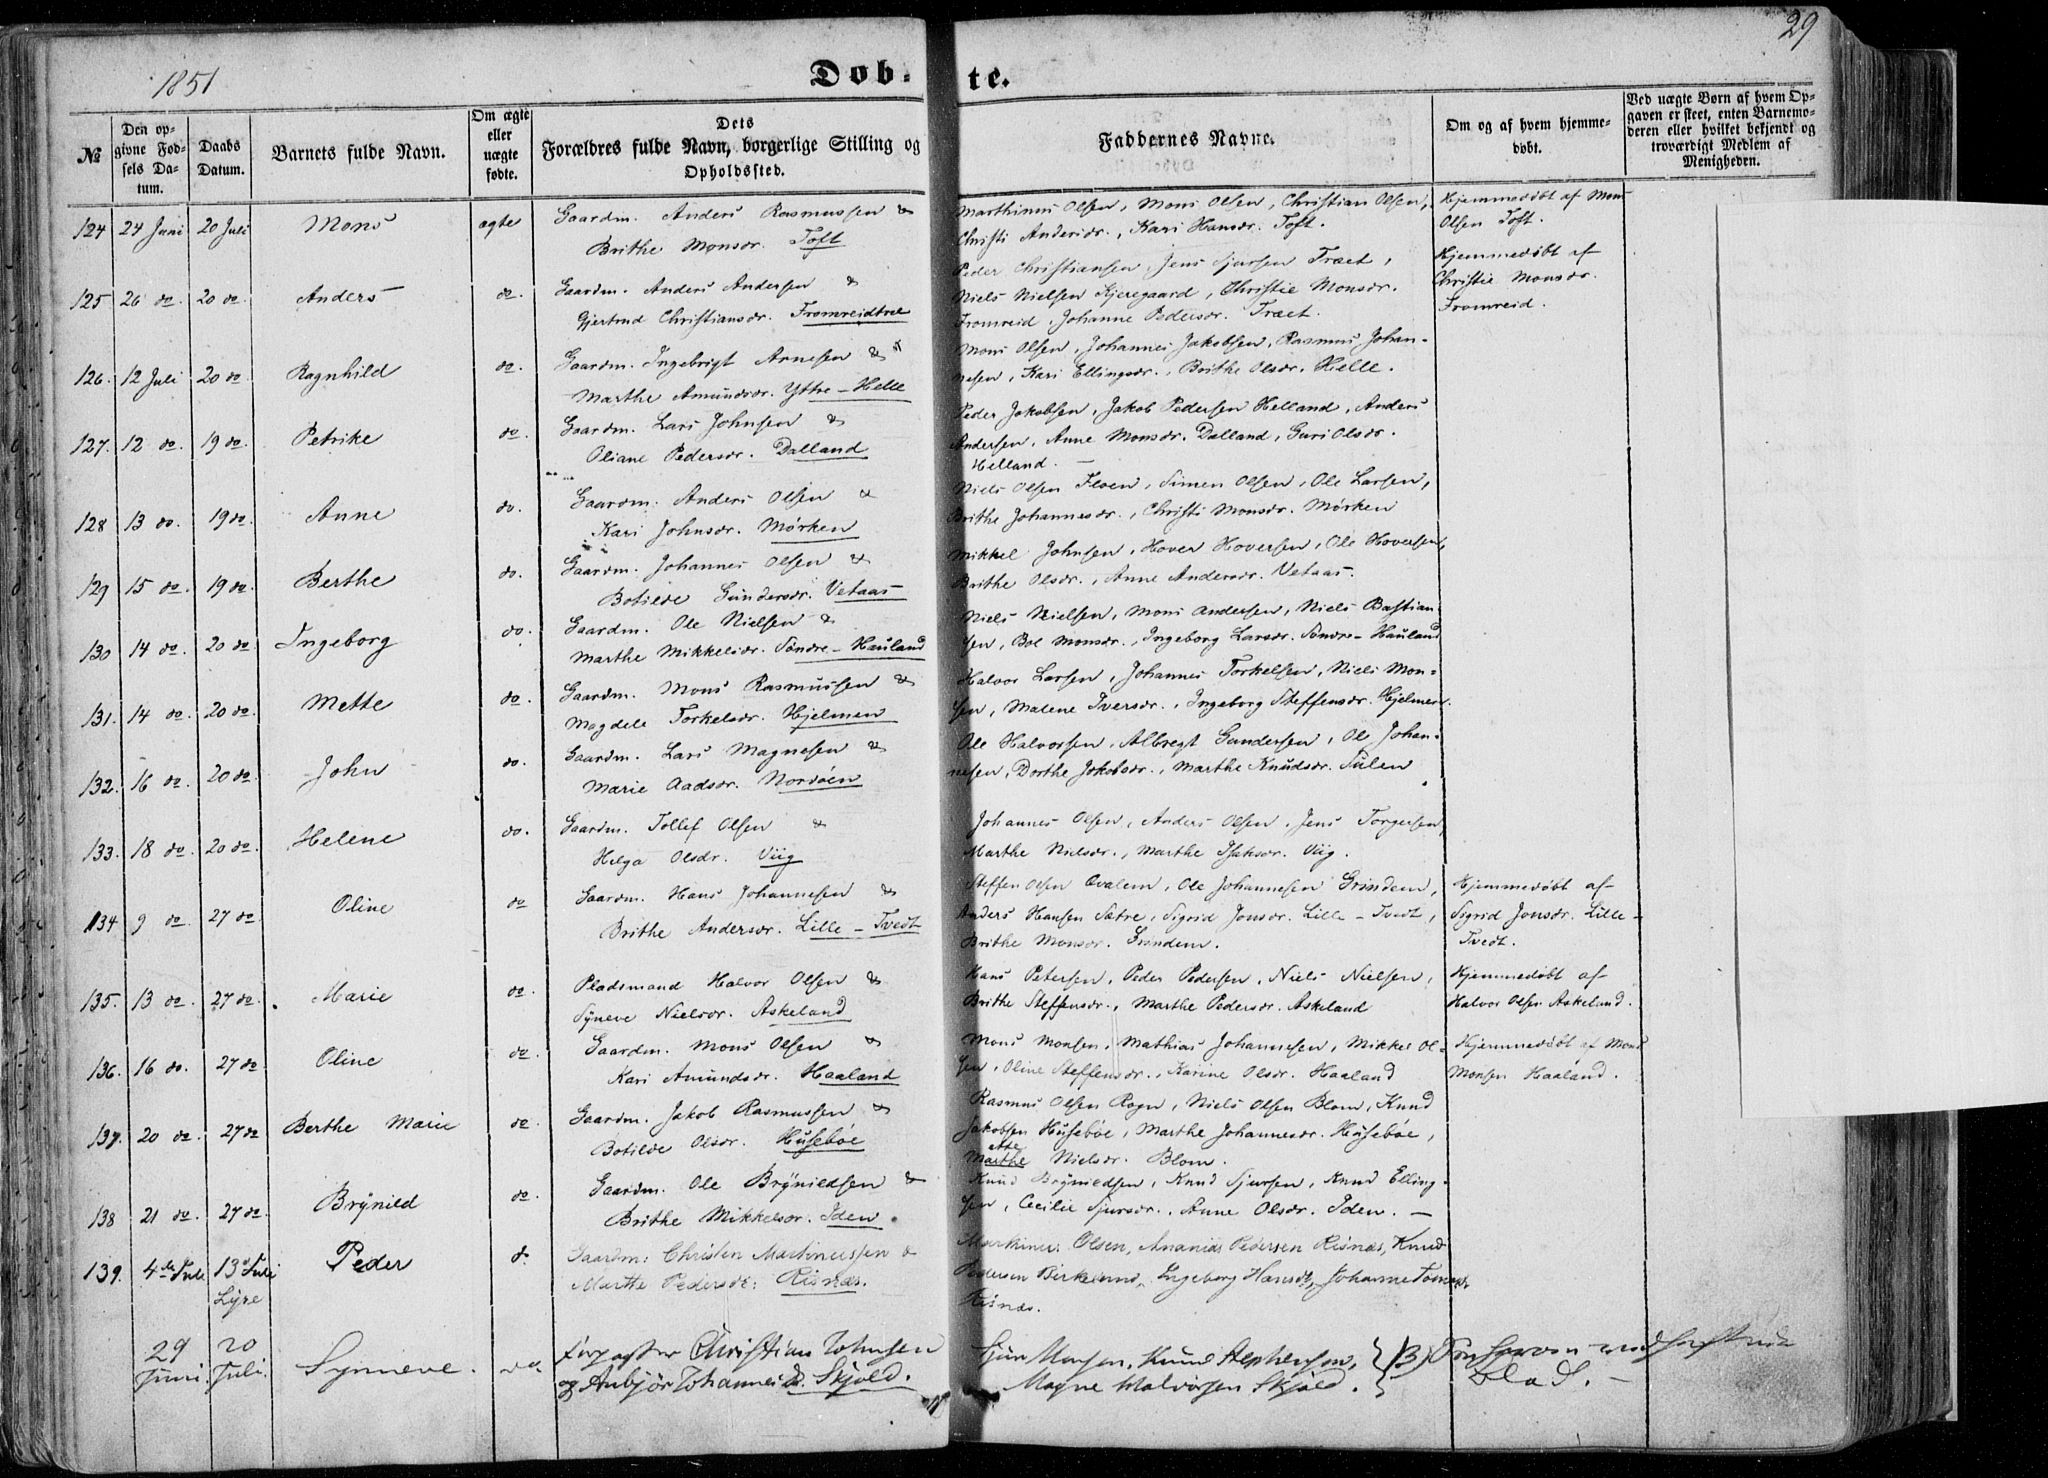 1851
Døb-te.
29
№
Den opgivne Fødsels Datum.
Daabs Datum.
Barnets fulde Navn.
Om ægte eller uægte fødte.
Dets Forældres fulde Navn, borgerlige Stilling og Opholdssted.
Faddernes Navne.
Om og af hvem hjemmedøbt.
Ved uægte Børn af hvem Opgaven er skeet, enten Barnemoderen eller hvilket bekjendt og troværdigt Medlem af Menigheden.
124 24 Juni 20 Juli Mons ægte Gaardm. Anders Rasmussen &
Brithe Monsdr. Toft
Marthinus Olsen, Mons Olsen, Christian Olsen,
Christi Andersdr., Kari Hansdr. Toft.
Hjemmedøbt af Mons
Olsen Toft.
125 26 do. 20 do. Anders do. Gaardm. Anders Andersen &
Gjertrud Christiansdr. Fromreidtræ
Peder Christiansen, Jens Sjursen Træet,
Niels Nielsen Kjeregaard, Christie Monsdr.
Fromreid, Johanne Pedersdr. Træet.
Hjemmedøbt af
Christie Monsdr.
Fromreid.
126. 12 Juli 20 do Ragnhild do. Gaardm. Ingebrigt Arnesen &
Marthe Amundsdr. Ytre-Helle
Mons Olsen, Johannes Jakobsen, Rasmus Johan-
nesen, Kari Ellingsdr., Brithe Olsdr. Helle.
127. 12 do. 19 do. Petrike do. Gaardm. Lars Johnsen &
Oliane Pedersdr. Dalland
Peder Jakobsen, Jakob Pedersen Helland, Anders
Andersen, Anne Monsdr. Dalland, Guri Olsdr.
Helland. —
128 13 do. 19 do. Anne do. Gaardm. Anders Olsen &
Kari Johnsdr. Mørken
Niels Olsen Floen, Simen Olsen, Ole Larsen,
Brithe Johannesdr., Christi Monsdr. Mørken
129 15 do. 19 do. Berthe do. Gaardm. Johannes Olsen &
Botilde Gundersdr. Vetaas
Mikkel Johnsen, Hover Hoversen, Ole Hoversen,
Brithe Olsdr., Anne Andersdr. Vetaas.
130 14 do. 20 do Ingeborg do. Gaardm. Ole Nielsen &
Marthe Mikkelsdr. Søndre-Hauland
Niels Nielsen, Mons Andersen, Niels Bastian-
sen, Bol Monsdr., Ingeborg Larsdr. Søndre-Hauland
131. 14 do. 20 do. Mette do. Gaardm. Mons Rasmussen &
Magdele Torkelsdr. Hjelmen
Halvor Larsen, Johannes Torkelsen, Niels Mon-
sen, Malene Iversdr., Ingeborg Steffensdr. Hjelmen.
132. 16 do. 20 do. John do. Gaardm. Lars Magnesen &
Marie Aadsdr. Nordøen
Ole Halvorsen, Albregt Gundersen, Ole Johan-
nesen, Dorthe Jakobsdr., Marthe Knudsdr. Sulen
133. 18 do. 20 do. Helene do. Gaardm. Tollef Olsen &
Helga Olsdr. Viig
Johannes Olsen, Anders Olsen, Jens Torgersen,
Marthe Nielsdr., Marthe Isaksdr. Viig.
134 9 do. 27 do Oline do Gaardm. Hans Johannesen &
Brithe Andersdr. Lille-Tvedt
Steffen Olsen Qvalem, Ole Johannesen Grindem,
Anders Hansen Sætre, Sigrid Jonsdr. Lille-Tvedt,
Brithe Monsdr. Grindem.
Hjemmedøbt af
Sigrid Jonsdr. Lille-
Tvedt.
135. 13 do. 27 do. Marie do. Pladsmand Halvor Olsen &
Syneve Nielsdr. Askeland
Hans Petersen, Peder Pedersen, Niels Nielsen,
Brithe Steffensdr., Marthe Pedersdr. Askeland
Hjemmedøbt af
Halvor Olsen Askeland.
136. 16 do. 27 do Oline do. Gaardm. Mons Olsen &
Kari Amundsdr. Haaland
Mons Monsen, Mathias Johannesen, Mikkel Ol-
sen, Oline Steffensdr., Karine Olsdr. Haaland
Hjemmedøbt af Mons
Monsen Haaland.
137. 20 do. 27 do Berthe Marie do. Gaardm. Jakob Rasmussen &
Botilde Olsdr. Husebøe
Rasmus Olsen Rogn, Niels Olsen Blom, Knud
Jakobsen Husebøe, Marthe Johannesdr. Husebøe,
Marthe Nielsdr. Blom.
138 21 do. 27 do. Brynild do. Gaardm. Ole Brynildsen &
Brithe Mikkelsdr. Iden.
Knud Brynildsen, Knud Sjursen, Knud Elling-
sen, Cecilie Sjursdr., Anne Olsdr. Iden. —
139. 4de Juli 13 Juli Lyre Peder d. Gaardm: Christen Martinussen &
Marthe Pedersdr: Risnæs.
Martinus Olsen, Ananias Pedersen Risnæs, Knud
Pedersen Birkeland, Ingeborg Hansdr, Johanne Tomasdr
Risnæs.
29 Juni. 20 Juli. Synneve. do Forpagter Christian Johnsen
og Anbjør Johannesdr. Skjold.
Sjur Monsen, Knud Stephensen,
Magne Halvorsen Skjold.
Blad. —